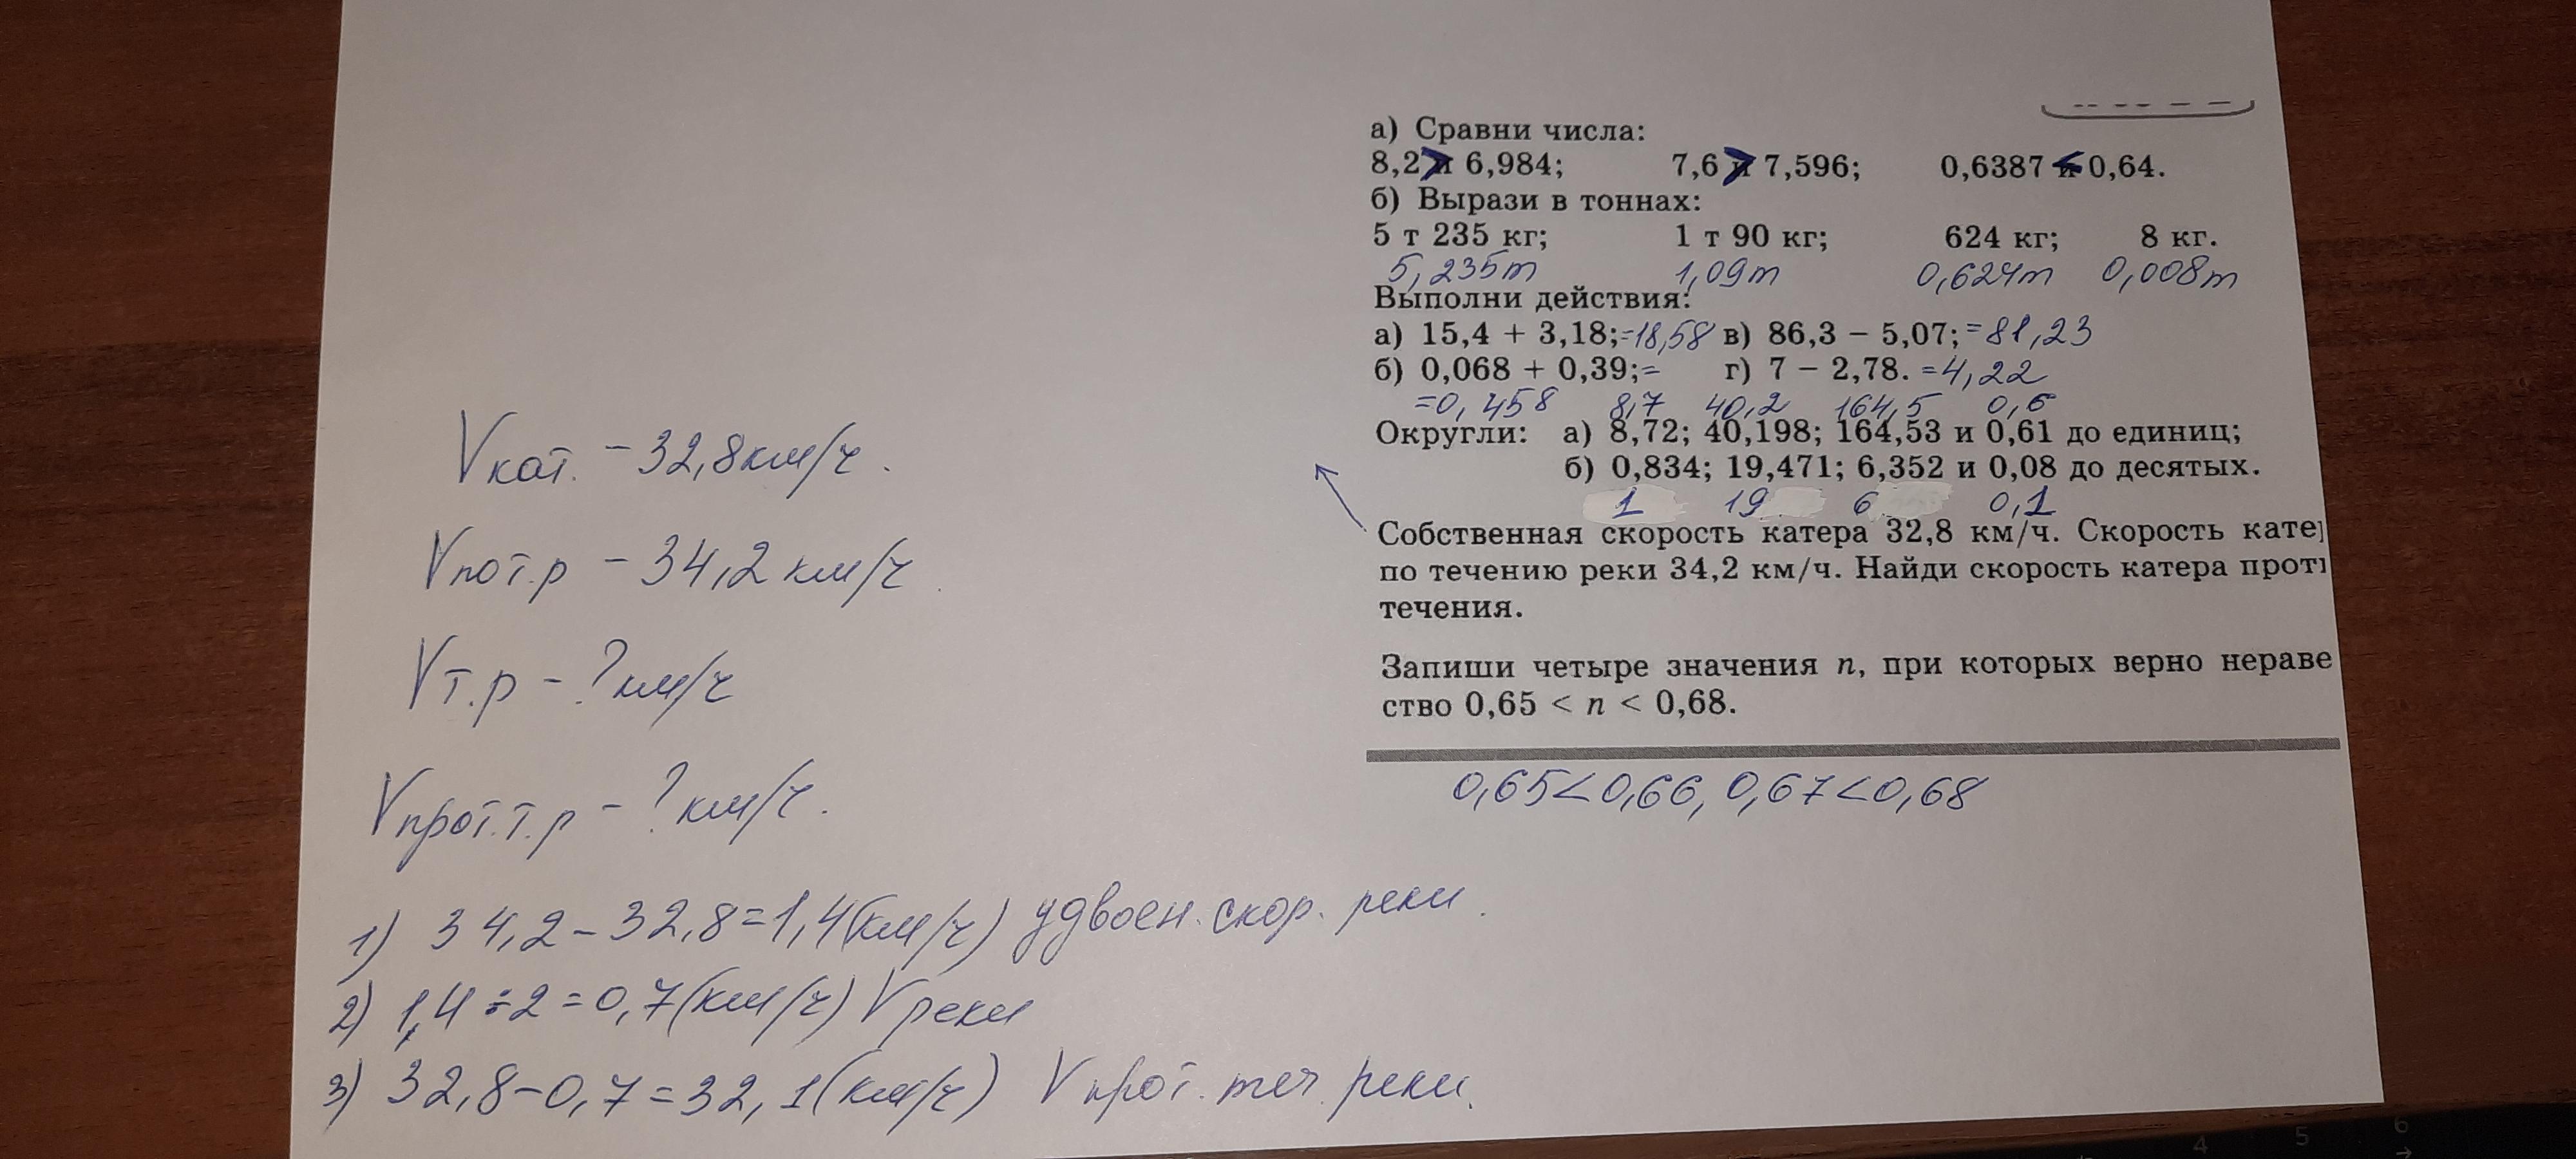 а) Сравни числа:
8,2 > 6,984; 7,6 > 7,596; 0,6387 < 0,64.
б) Вырази в тоннах:
5 т 235 кг; 1 т 90 кг; 624 кг; 8 кг.
5,235т 1,09т 0,624т 0,008т
Выполни действия:
а) 15,4 + 3,18; =18,58 в) 86,3 − 5,07; =81,23
б) 0,068 + 0,39; = г) 7 − 2,78. =4,22
=0,458 8,7 40,2 164,5 0,6
Округли: а) 8,72; 40,198; 164,53 и 0,61 до единиц;
б) 0,834; 19,471; 6,352 и 0,08 до десятых.
1 19 6 0,1
Собственная скорость катера 32,8 км/ч. Скорость кате
по течению реки 34,2 км/ч. Найди скорость катера проти
течения.
Запиши четыре значения n, при которых верно нераве
ство 0,65 < n < 0,68.
0,65<0,66, 0,67<0,68
Vкат. – 32,8км/ч.
Vпот.р – 34,2 км/ч.
Vт.р – ? км/ч
Vпрот.т.р – ? км/ч.
1) 34,2 – 32,8 = 1,4(км/ч) удвоен. скор. реки.
2) 1,4 ÷ 2 = 0,7(км/ч) V реки
3) 32,8 – 0,7 = 32,1(км/ч) V прот. теч. реки.
4 5 6